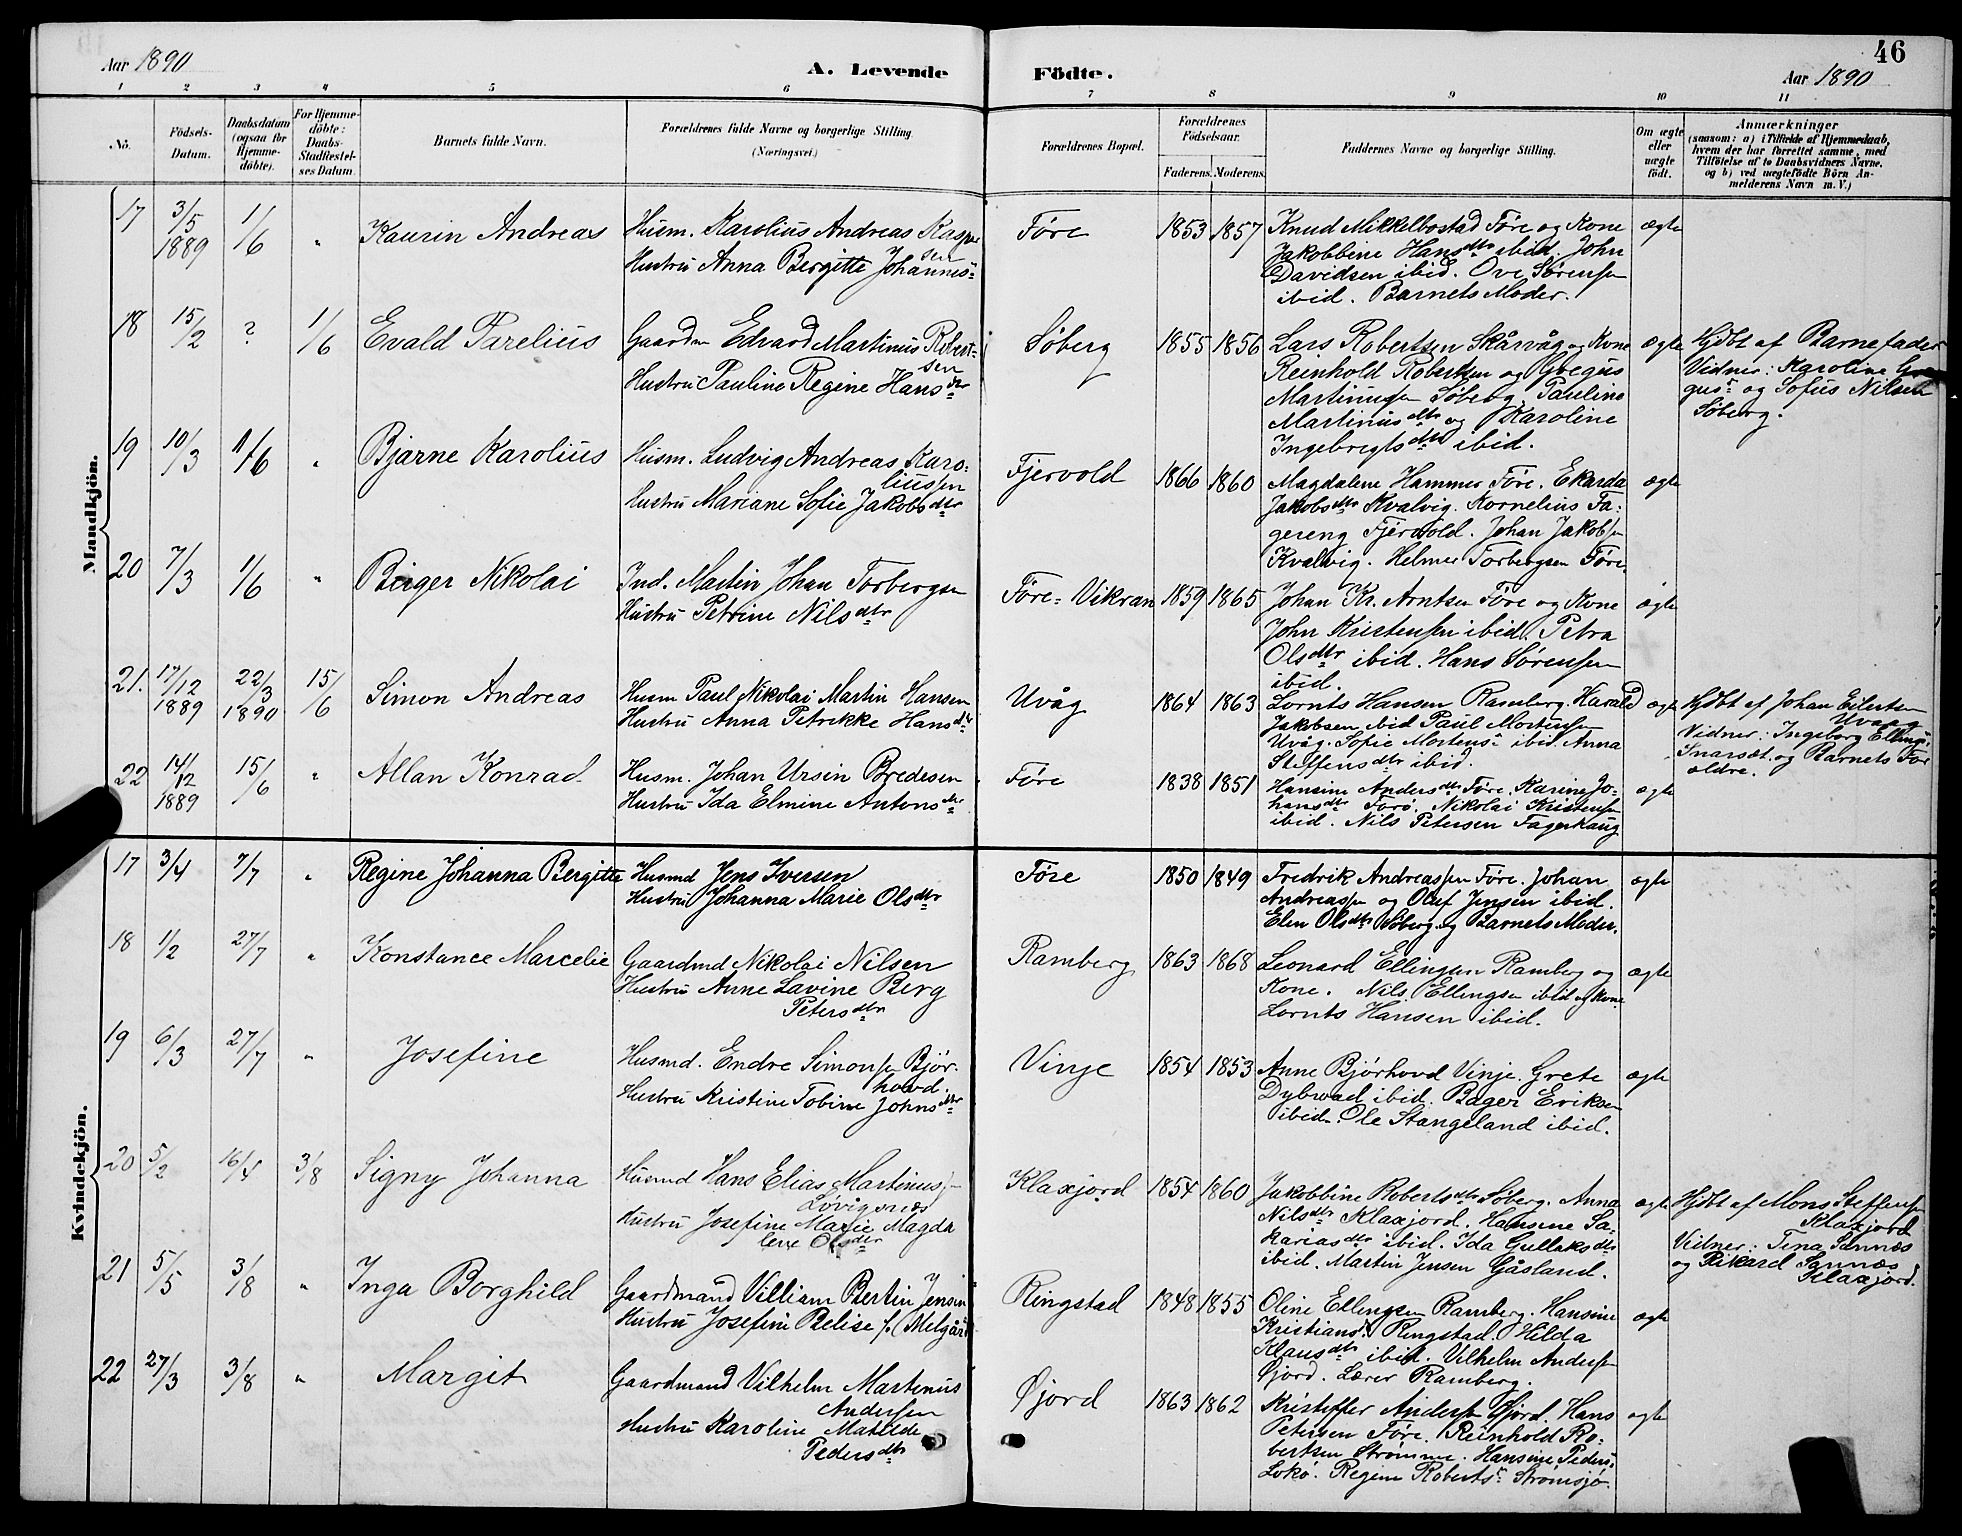 46
Aar 1890
A. Levende Födte.
Aar 1890
1 2 3 4 5 6 7 8 9 10 11
No.
Födsels-
Datum.
Daabsdatum
(ogsaa for
Hjemme-
döbte).
For Hjemme-
döbte:
Daabs-
Stadfæstel-
ses Datum.
Barnets fulde Navn.
Forældrenes fulde Navne og borgerlige Stilling.
(Næringsvei.)
Forældrenes Bopæl.
Forældrenes
Födselsaar.
Faderens. Moderens.
Faddernes Navne og borgerlige Stilling.
Om ægte
eller
uægte
födt.
Anmærkninger
(saasom: a) i Tilfælde af Hjemmedaab,
hvem der har forrettet samme, med
Tilföielse af to Daabsvidners Navne,
og b) ved uægtefödte Börn An-
melderens Navn m. V.)
Mandkjön.
17 3/5 1889 1/6 " Kaurin Andreas
Husm. Karolius Andreas Kasper
sen
Hustru Anna Bergitte Johannes-
Føre 1853 1857
Knud Mikkelbostad Føre og Kone
Jakobbine Hansdtr ibid. John
Davidsen ibid. Ove Sørensen
ibid. Barnets Moder.
ægte
18 15/2 ? 1/6 Evald Parelius
Gaardm Edvard Martinus Robert-
sen
Hustru Pauline Regine Hansdtr
Søberg 1855 1856
Lars Robertsen Skårvåg og Kone
Reinhold Robertsen og Gregus
Martinussen Søberg. Pauline
Martinusdtr og Karoline
Ingebregtsdtr ibid.
ægte
Hjdbt af Barnefader
Vidner: Karoline Gre
gus- og Sofus Nilsen
Søberg.
19 10/3 1/6 " Bjarne Karolius
Husm. Ludvig Andreas Karo-
liussen
Hustru Mariane Sofie Jakobsdtr
Fjervold 1866 1860
Magdalene Hammer Føre. Ekarda
Jakobsdtr Kvalvig. Kornelius Fa-
gereng Fjervold. Johan Jakobsen
Kvalvig. Helmer Torbergsen Føre.
ægte
20 7/3 1/6 " Birger Nikolai
Ind. Martin Johan Torbergsen
Hustru Petrine Nilsdtr
Føre-Vikran 1859 1865
Johan Kr. Arntsen Føre og Kone
John Kristensen ibid. Petra
Olsdtr ibid. Hans Sørensen
ibid.
ægte
21. 17/12 1889 22/3 1890 15/6 Simon Andreas
Husm Paul Nikolai Martin Hansen
Hustru Anna Petrikke Hansdtr
Uvåg 1864 1863
Lornts Hansen Ramberg. Harald
Jakobsen ibid Paul Mortensen
Uvåg. Sofie Mortens- ibid. Anna
Steffensdtr ibid.
ægte
Hjdbt af Johan Eilertsen
Uvaag
Vidner: Ingeborg Ellings-
Snarsæt. og Barnets For
ældre.
22 14/12 1889 15/6 " Allan Konrad
Husm. Johan Ursin Bredesen
Hustru Ida Elmine Antonsdtr
Føre 1838 1851
Hansine Andersdtr Føre. Karine Jo-
hansdtr Førø. Nikolai Kristensen
ibid. Nils Petersen Fagerhaug
ægte
Kvindekjön.
17 3/4 7/7 " Regine Johanna Bergitte
Husmd Jens Iversen
Hustru Johanna Marie Olsdtr
Føre 1850 1849
Fredrik Andreassen Føre. Johan
Andreassen og Oluf Jensen ibid.
Elen Olsdtr Søberg og Barnets Moder.
ægte
18 1/2 27/7 " Konstance Marcelie
Gaardmd Nikolai Nilsen
Hustru Anne Lavine Berg
Petersdtr
Ramberg 1863 1868
Leonard Ellingsen Ramberg og
Kone. Nils Ellingsen ibid og Kone
Lornts Hansen ibid.
ægte
19 6/3 27/7 " Josefine
Husmd. Endre Simonsen Bjør-
hovd.
Hustru Kristine Tobine Johnsdtr
Vinje 1854 1853
Anne Bjørhovd Vinje. Grete
Dybwad ibid. Bager Eriksen
ibid. Ole Stangeland ibid.
ægte
20 5/2 16/4 3/8 Signy Johanna
Husmd Hans Elias Martinus-
Løvignæs
Hustru Josefine Marie Magda
lene Olsdtr
Klaxjord 1854 1860
Jakobbine Robertsdtr Søberg. Anna
Nilsdtr Klaxjord. Hansine Sa-
kariasdtr ibid. Ida Gullaksdtr
ibid. Martin Jensen Gåsland.
ægte
Hjdbt af Mons Steffensen
Klaxjord
Vidner: Tina Sannæs
og Rikard Sannæs
Klaxjord.
21 5/5 3/8 " Inga Borghild
Gaardmand Villiam Bertin Jensen
Hustru Josefine Belise f. (Melgård
Ringstad 1848 1855
Oline Ellingsen Ramberg. Hansine
Kristians. Ringstad. Hilda
Klausdtr ibid. Vilhelm Andersen
Øjord. Lærer Ramberg.
ægte
22 27/3 3/8 " Margit
Gaardmand Vilhelm Martinus
Andersen
Hustru Karoline Matilde
Pedersdtr
Øjord 1863 1862
Kristoffer Andersen Øjord. Hans
Petersen Føre. Reinhold Ro-
bertsen Strømme. Hansine Peders-
Lokø. Regine Roberts- Strømsjø.
ægte